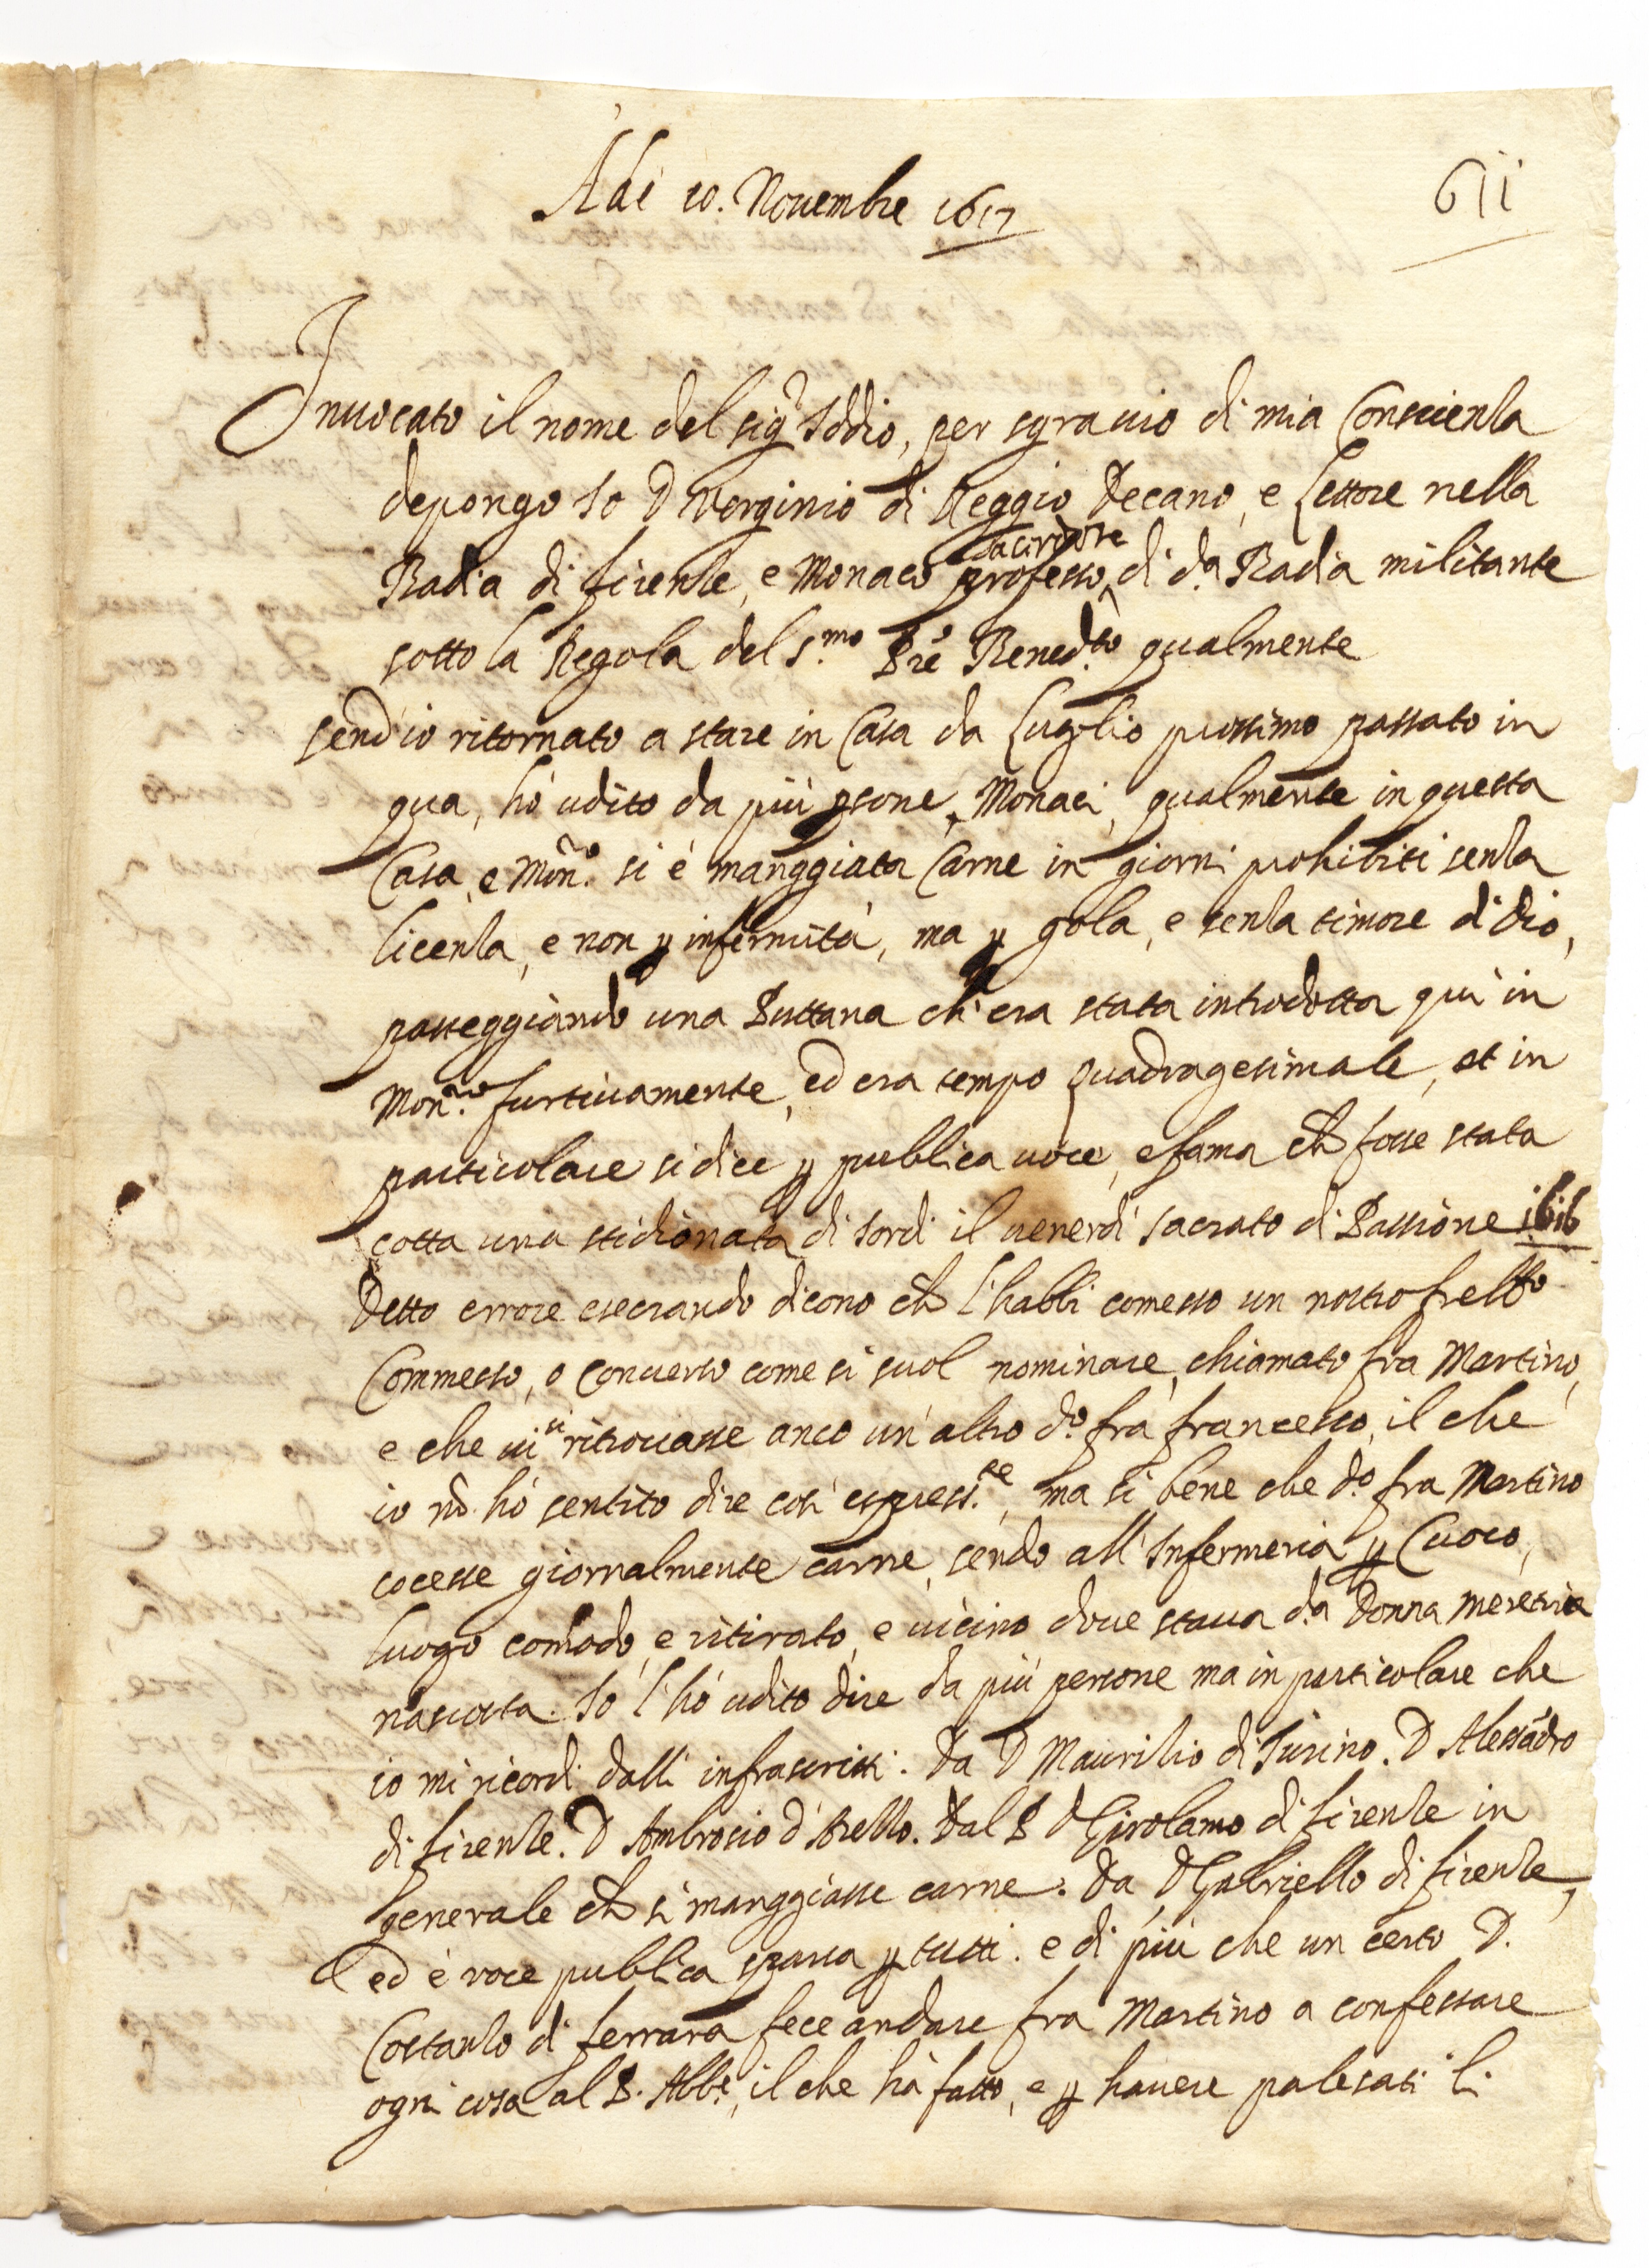 Adi 10. Nouembre 1617
611
Inuocato il nome del sig.r Iddio, per sgrauio di mia Conscienza
depongo Io D Verginio di Reggio Decano, e Lettore nella
Badia di firenze, e Monaco professo sacerdote di d.a Badia militante
sotto la Regola del S.mo Pre Bened.to qualmente
send'io ritornato a stare in Casa da Luglio prossimo passato in
qua, hò udito da più psone, Monaci, qualmente in questa
Casa, e Mon.o si è manggiata Carne in giorni prohibiti senza
licenza, e non p infermità, ma p gola, e senza timore di Dio,
passeggiando una Puttana ch'era stata introdotta quì in
Mon.ro furtiuamente, ed era tempo quadragesimale, et in
particolare si dice p publica uoce, e fama ch fosse stata
cotta una stidionata di tordi il uenerdì sacrato di Passione 1616
Detto errore esecrando dicono ch l'habbi comesso un nostro frell.o
Commesso, o Conuerso come si suol nominare, chiamato fra Martino,
e che ui si ritrouasse anco un'altro d.o frà francesco, il che
io nõ hò sentito dire così espress.te, ma si bene che d.o fra Martino
cocesse giornalmente carne, sendo all'Infermeria p Cuoco,
luogo comodo, e ritirato, e uicino doue staua d.a Donna meretrice
nascosta. Io l'hò udito dire da più persone ma in particolare che
io mi ricordi dalli infrascritti. Da D Maurilio di Turino. D Alessãdro
di firenze. D Ambrosio d'Arezzo. Dal P D Girolamo di firenze in
generale ch si manggiasse carne. Da D Gabriello di firenze,
ed è voce publica sparsa p tutti. e di più che un certo D.
Costanzo di ferrara fece andare fra Martino a confessare
ogni cosa al P. Abb.e, il che hà fatto, e p hauere palesati li